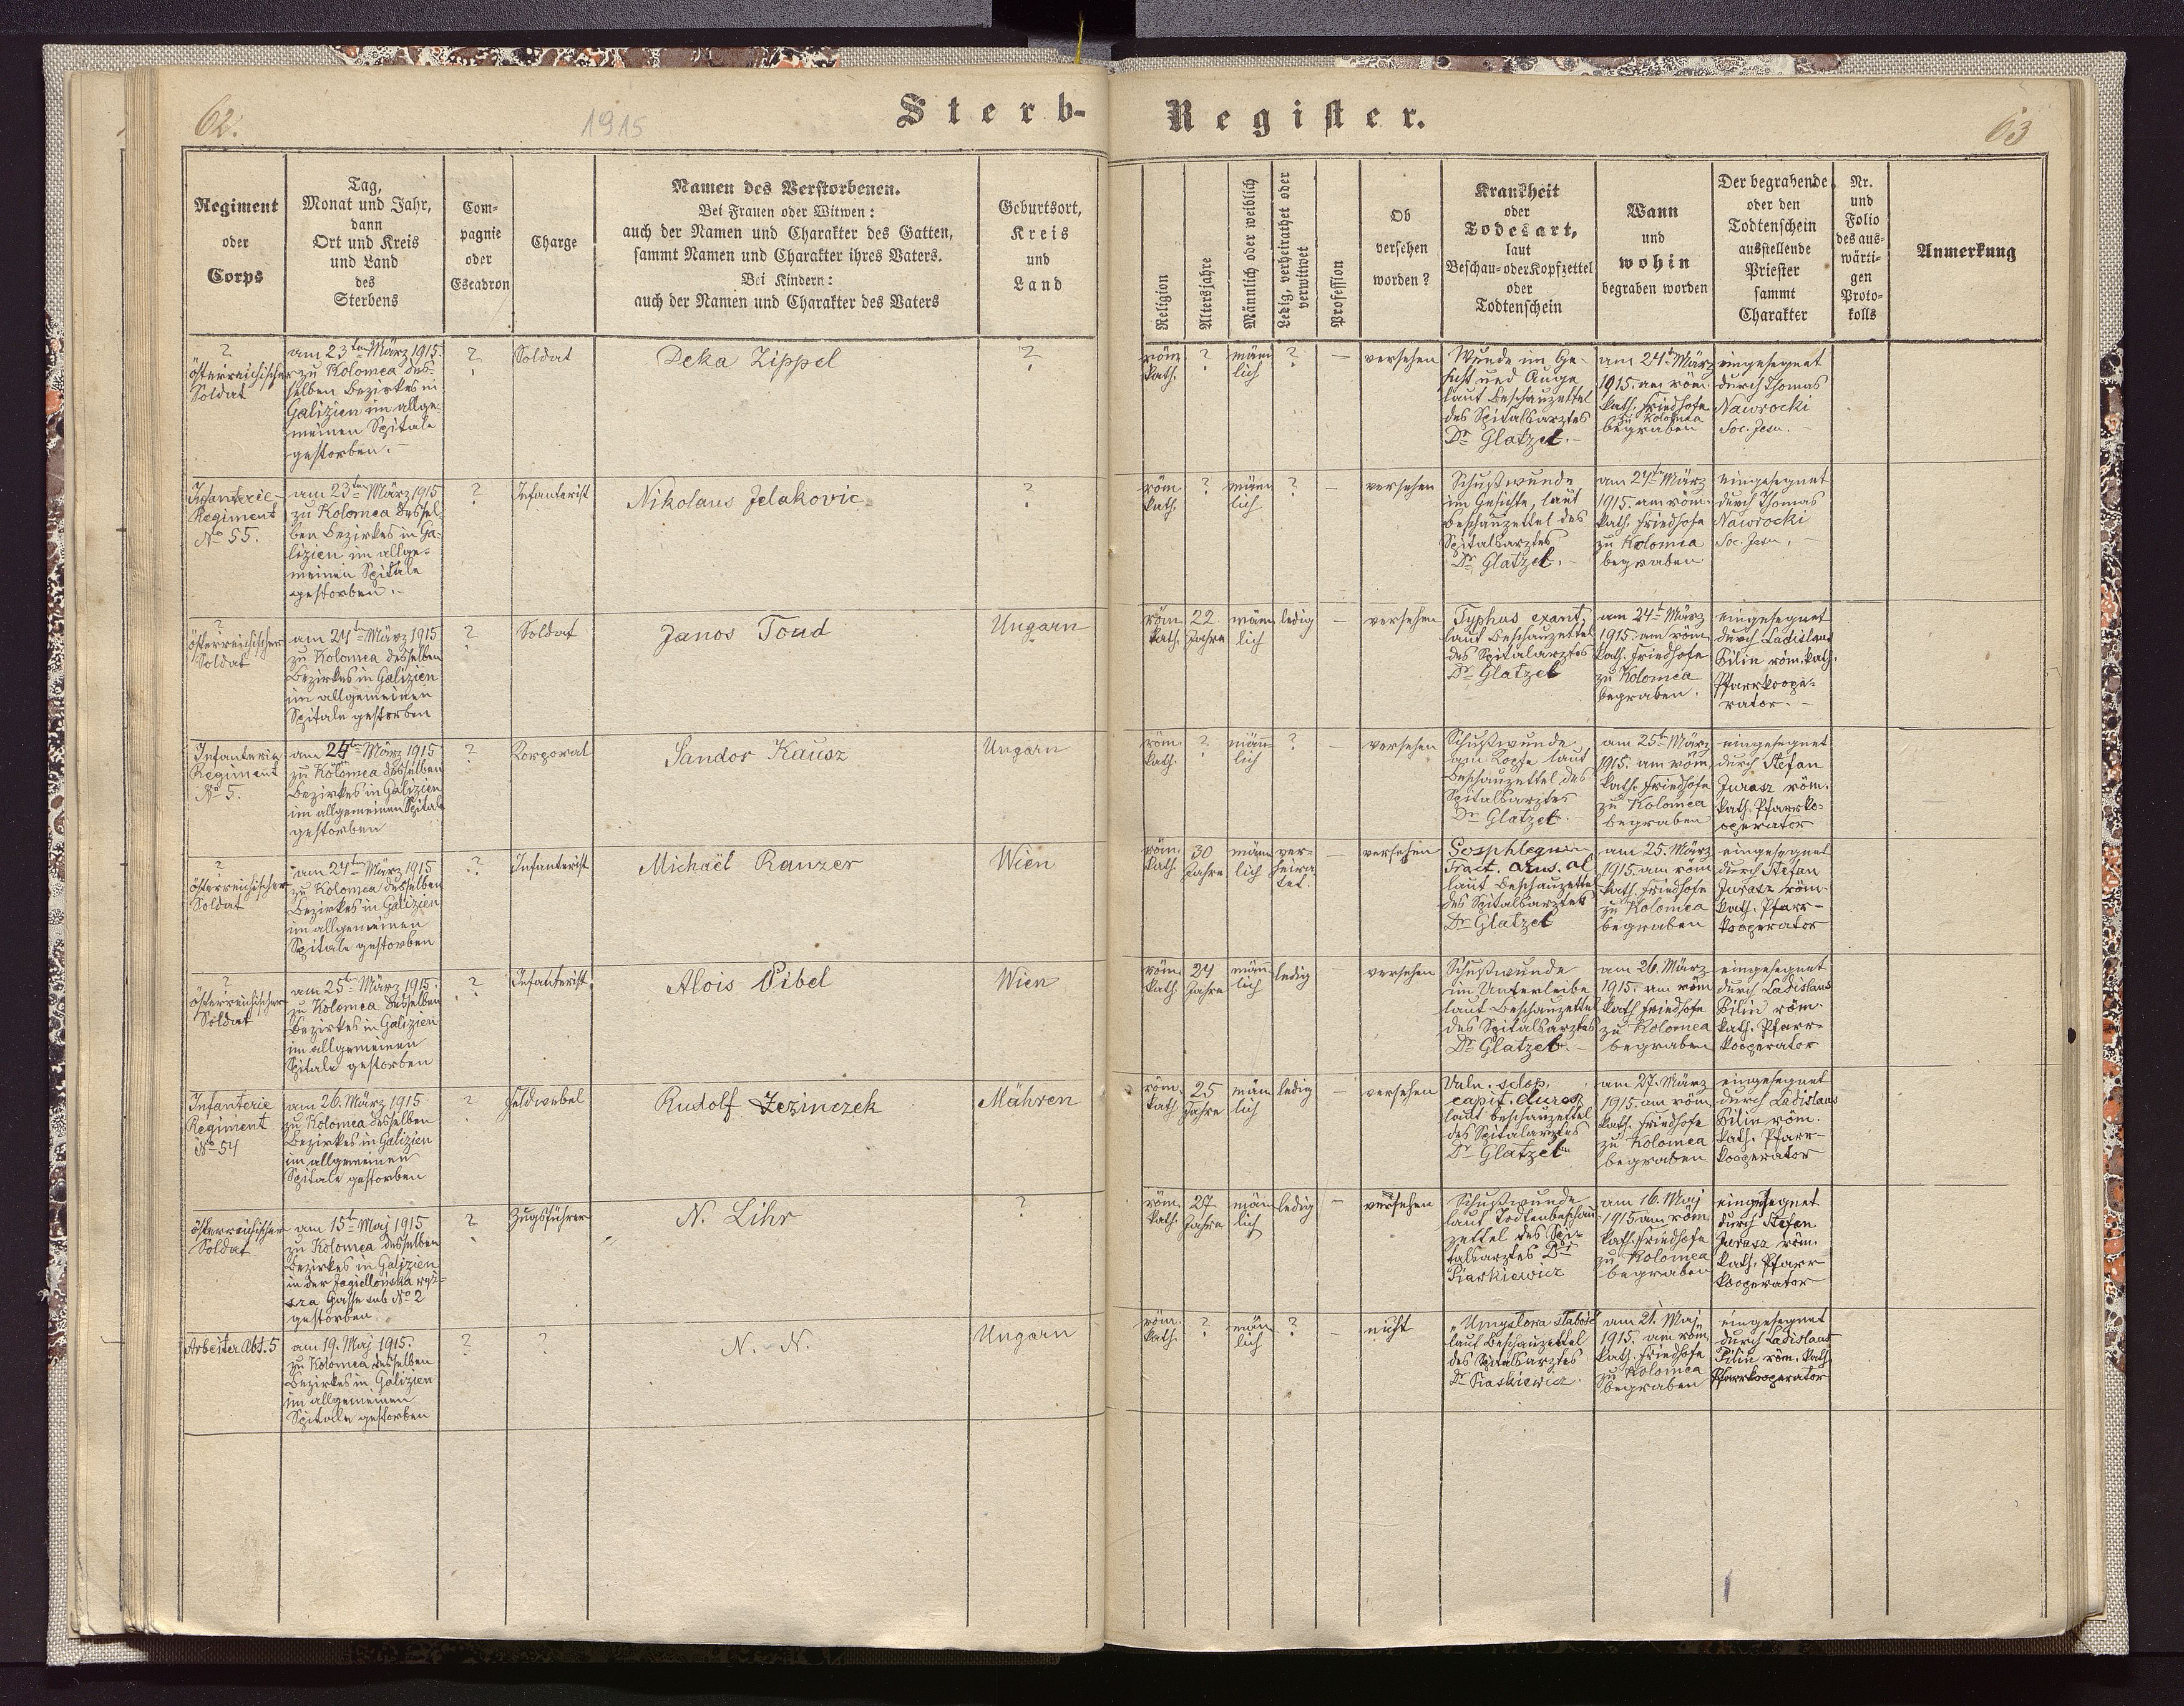 62.
1915
Sterb-
Regiment
oder
Corps
Tag,
Monat und Jahr,
dann
Ort und Kreis
und Land
des
Sterbens
Com-
pagnie
oder
Escadron
Charge
Namen des Verstorbenen.
Bei Frauen oder Witwen:
auch der Namen und Charakter des Gatten,
sammt Namen und Charakter ihres Vaters.
Bei Kindern:
auch der Namen und Charakter des Vaters
Geburtsort,
Kreis
und
Land
?
österreichischer
Soldat
am 23ten März 1915.
zu Kolomea des-
selben Bezirkes in
Galizien im allge-
meinen Spitale
gestorben.
?
Soldat
Deka Zippel
?
Infanterie-
Regiment
No 55.
am 23ten März 1915
zu Kolomea dessel-
ben Bezirkes in Ga-
lizien im allge-
meinen Spitale
gestorben.
?
Infanterist
Nikolaus Jelakovic
?
?
österreichischer
Soldat
am 24t März 1915
zu Kolomea desselben
Bezirkes in Galizien
im allgemeinen
Spitale gestorben
?
Soldat
Janos Toud
Ungarn
Infanterie
Regiment
No 5.
am 24t März 1915
zu Kolomea desselben
Bezirkes in Galizien
im allgemeinen Spitale
gestorben
?
Korporal
Sandor Kausz
Ungarn
?
österreichischer
Soldat
am 24ten März 1915
zu Kolomea desselben
Bezirkes in Galizien
im allgemeinen
Spitale gestorben
?
Infanterist
Michaël Ranzer
Wien
?
österreichischer
Soldat
am 25t März 1915.
zu Kolomea desselben
Bezirkes in Galizien
im allgemeinen
Spitale gestorben
?
Infanterist
Alois Pibel
Wien
Infanterie
Regiment
No 54
am 26. März 1915
zu Kolomea desselben
Bezirkes in Galizien
im allgemeinen
Spitale gestorben
?
Feldwebel
Rudolf Jezinczek
Mähren
österreichischer
Soldat
am 15t Maj 1915
zu Kolomea desselben
Bezirkes in Galizien
in der Jagiellońska wyż-
sza Gasse sub No 2
gestorben
?
Zugsführer
N. Lihr
?
Arbeiter Abt. 5
am 19. Maj 1915.
zu Kolomea desselben
Bezirkes in Galizien
im allgemeinen
Spitale gestorben
?
?
N. N.
Ungarn
Register.
63
Religion
Altersjahre
Männlich oder weiblich
Ledig, verheirathet oder
verwitwet
Profession
Ob
versehen
worden?
Krankheit
oder
Todesart,
laut
Beschau- oder Kopfzettel
oder
Todtenschein
Wann
und
wohin
begraben worden
Der begrabende
oder den
Todtenschein
ausstellende
Priester
sammt
Charakter
Nr.
und
Folio
des aus-
wärti-
gen
Proto-
kolls
Anmerkung
röm.
kath.
?
män
lich
?
—
versehen
Wunde im Ge-
sicht und Auge
laut Beschauzettel
des Spitalsarztes
Dr Glatzel.
am 24t März
1915. am röm.
kath. Friedhofe
zu Kolomea
begraben
eingesegnet
durch Thomas
Nawrocki
Soc. Jesu.
röm.
kath.
?
män
lich
?
—
versehen
Schußwunde
im Gesichte, laut
Beschauzettel des
Spitalsarztes
Dr Glatzel.
am 24ten März
1915. am röm.
kath. Friedhofe
zu Kolomea
begraben
eingesegnet
durch Thomas
Nawrocki
Soc. Jesu.
röm.
kath.
22
Jahre
män
lich
ledig
—
versehen
Typhus exant.
laut Beschauzettel
des Spitalarztes
Dr Glatzel
am 24t März
1915. am röm.
kath. Friedhofe
zu Kolomea
begraben.
eingesegnet
durch Ladislaus
Bilin röm. kath.
Pfarrkoope-
rator.
röm.
kath.
?
män
lich
?
—
versehen
Schußwunde
am Kopfe laut
Beschauzettel des
Spitalsarztes
Dr Glatzel.
am 25t März
1915. am röm.
kath. Friedhofe
zu Kolomea
begraben
eingesegnet
durch Stefan
Jurasz röm.
kath. Pfarrko-
operator
röm.
kath.
30
Jahre
män
lich
ver-
heira
tet.
—
versehen
laut Beschauzettel
des Spitalsarztes
Dr Glatzel
am 25. März
1915. am röm.
kath. Friedhofe
zu Kolomea
begraben
eingesegnet
durch Stefan
Jurasz röm.
kath. Pfarr-
kooperator
röm.
kath.
24
Jahre
män
lich
ledig
—
versehen
Schußwunde
im Unterleibe
laut Beschauzettel
des Spitalsarztes
Dr Glatzel.
am 26. März
1915. am röm.
kath. Friedhofe
zu Kolomea
begraben
eingesegnet
durch Ladislaus
Bilin röm.
kath. Pfarr-
kooperator
röm.
kath.
25
Jahre
män
lich
ledig
—
versehen
Vuln. sclop.
capit.
laut beschauzettel
des Spitalarztes
Dr Glatzel
am 27. März
1915. am röm.
kath. Friedhofe
zu Kolomea
begraben
eingesegnet
durch Ladislaus
Bilin röm.
kath. Pfarr-
kooperator
röm.
kath.
27
Jahre
män
lich
ledig
—
versehen
Schußwunde
laut Todtenbeschau
zettel des Spi-
talsarztes Dr
Piaskiewicz
am 16. Maj
1915. am röm.
kath. Friedhofe
zu Kolomea
begraben
eingesegnet
durch Stefan
Jurasz röm.
kath. Pfarr
kooperator
röm.
kath.
?
män
lich
?
—
nicht
laut Beschauzettel
des Spitalsarztes
Dr Piaskiewicz.
am 21. Maj
1915. am röm.
kath. Friedhofe
zu Kolomea
begraben
eingesegnet
durch Ladislaus
Bilin röm. kath.
Pfarrkooperator